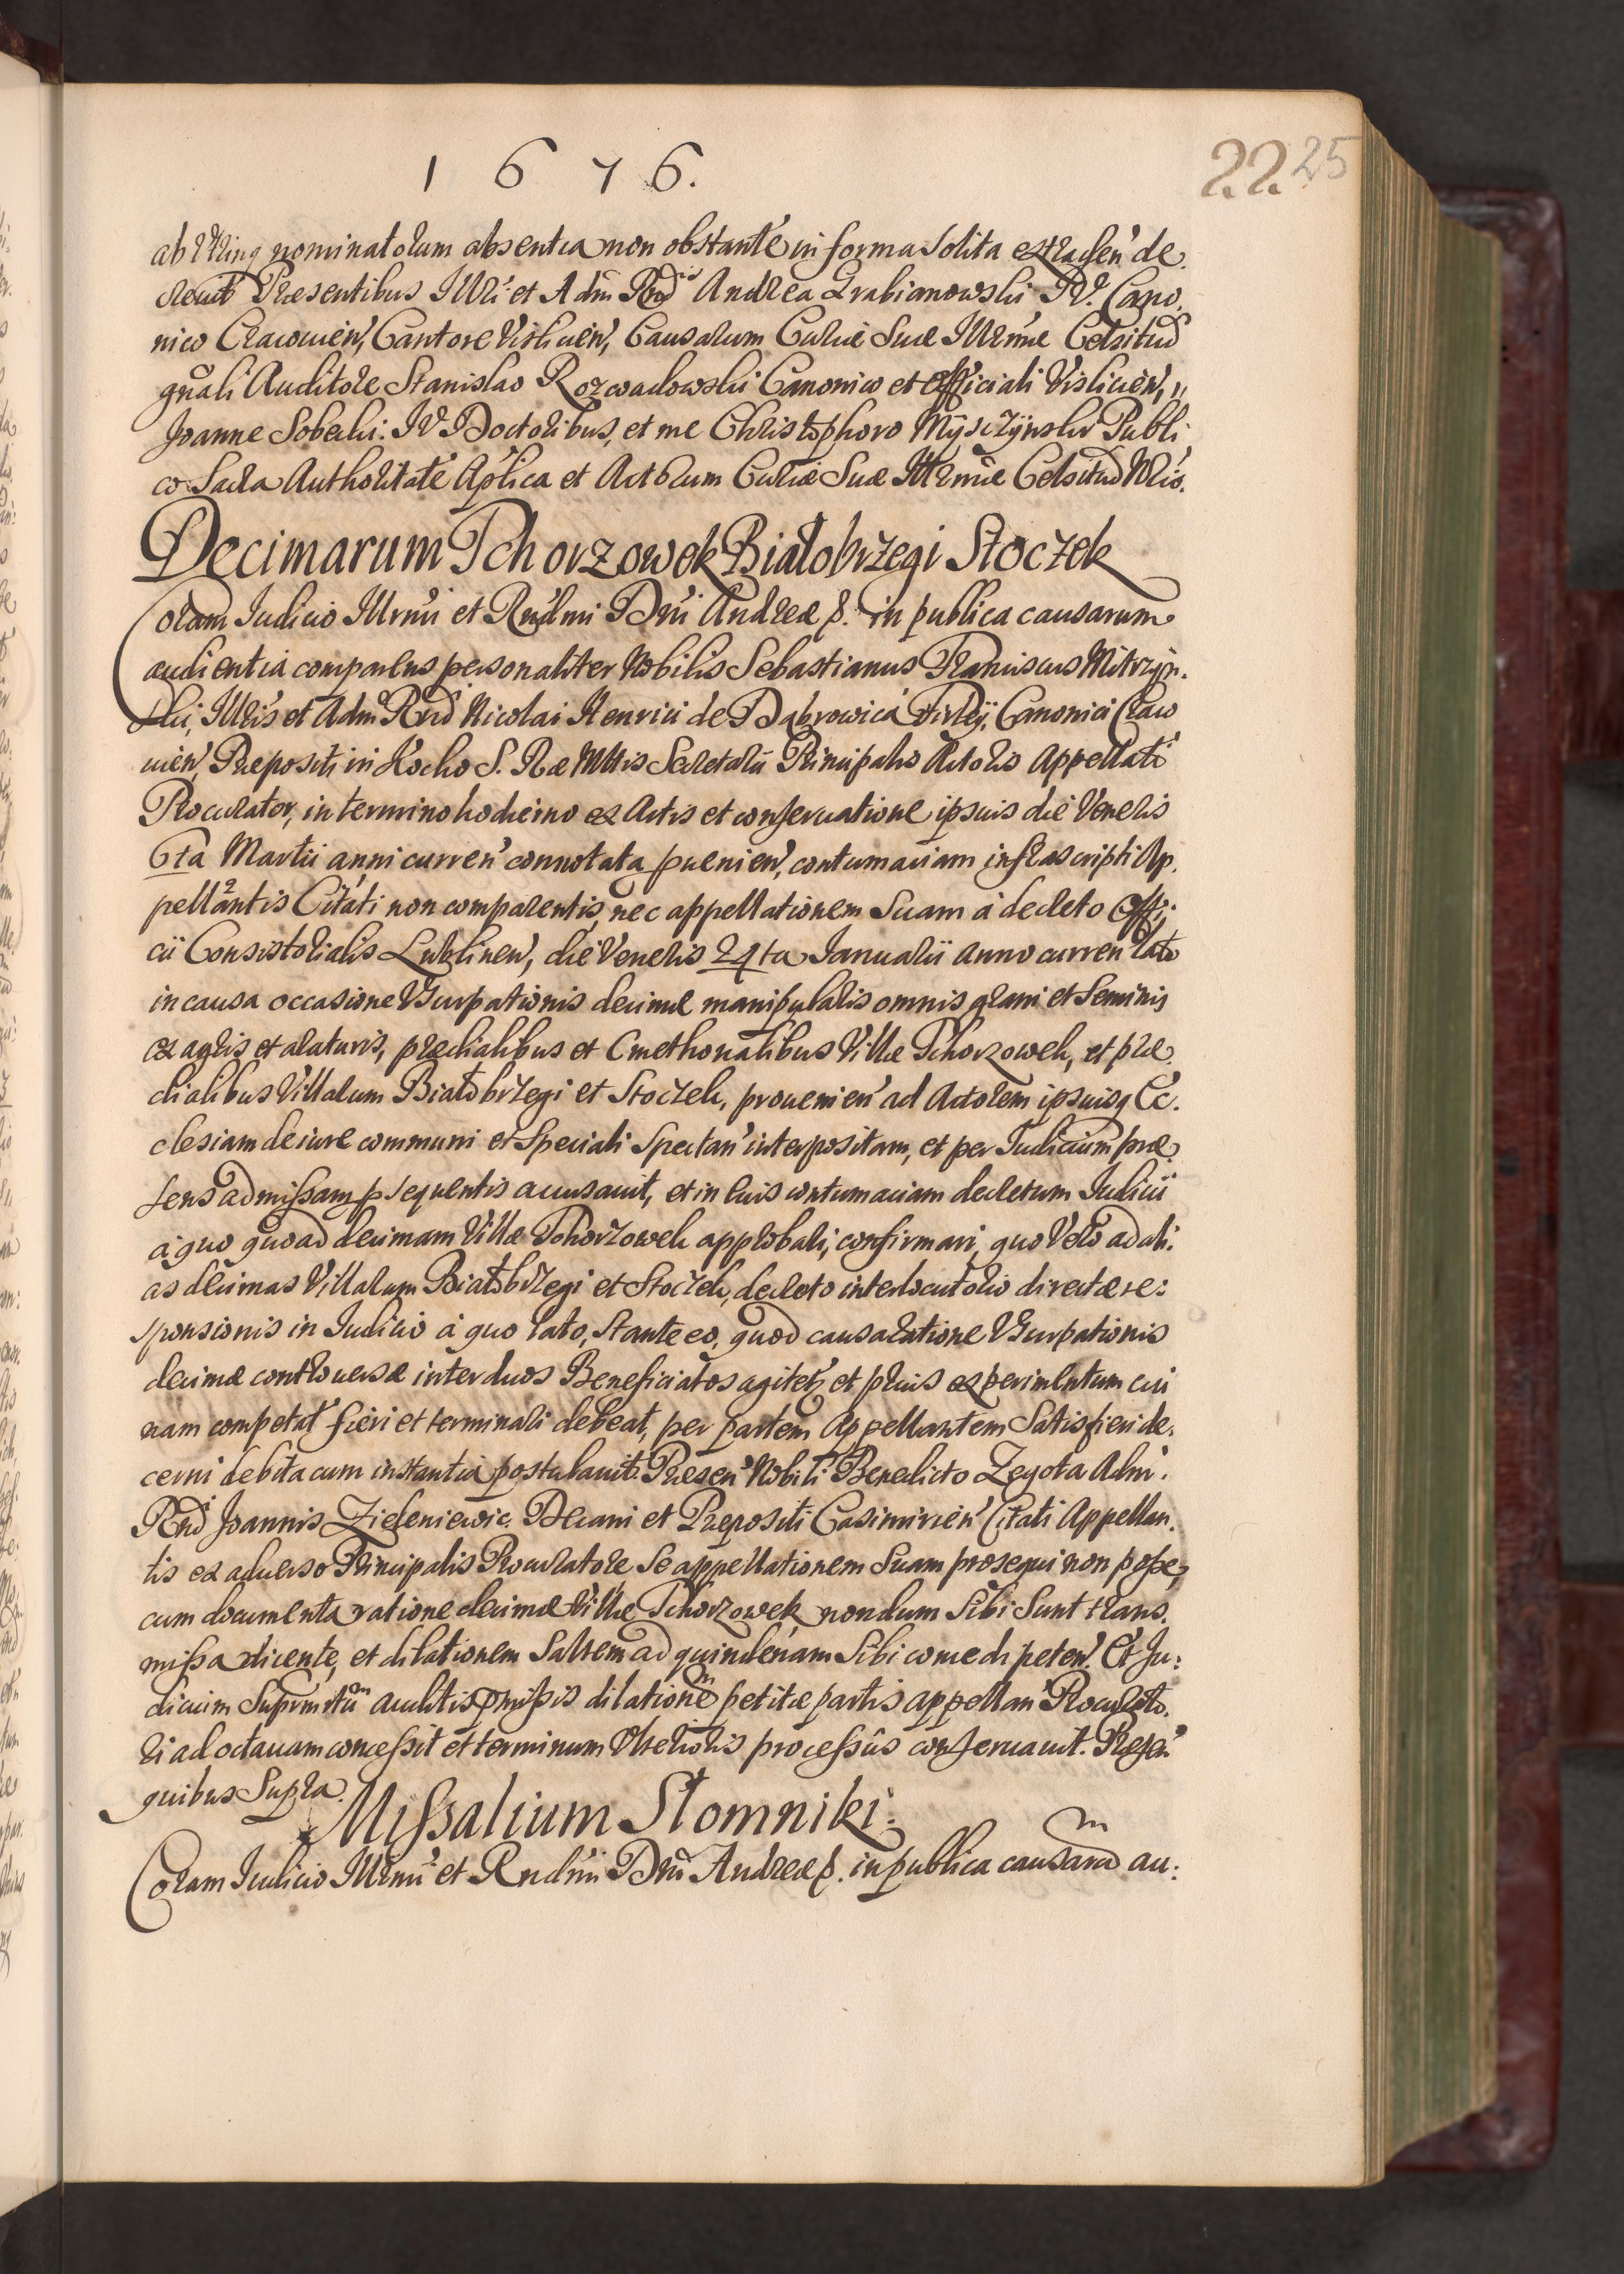 1676.
22 25
ab utrinq nominatorum absentia non obstante in forma solita extraden' de
creuit Præsentibus Illri et Adm Rndis Andrea Grabianowski IV. Cano
nico Cracouien', Cantore Visliuien', Causarum Curiæ Suæ Illrmæ Celsitud
gnali Auditore Stanislao Rozwadowski Canonico et Officiali Vislicien',
Joanne Sobecki. IV Doctoribus, et me Christophoro Mÿsczÿnski Publi
co Sacra Authoritate Aplica et Actorum Curiæ Suæ Illrmæ Celsitud Nrio.
Decimarum Tchorzowek Białobrzegi Stoczek
Coram Iudicio Illrmi et Rndmi Dni Andreæ &. in publica causarum
audientia comparens personaliter Nobilis Sebastianus Franciscus Mitrzyn.
ski, Illris et Adm Rnd Nicolai Henrici de Dąbrowica Firleÿ, Canonici Craco
uien', Præpositi in Kocko S. Ræ Mttis Secretarii Principalis Actoris Appellati
Procurator, in termino hodierno ex Actis et conseruatione ipsius die Veneris
6ta Martii anni curren' connotata puenien', contumaciam infrascripti Ap.
pellantis Citati non comparentis, nec appellationem Suam à decreto Offi
cii Consistorialis Lublinen', die Veneris 24ta Januarii anno curren' lato
in causa occasione Vsurpationis decimæ manipularis omnis grani et Seminis
ex agris et araturis, prædialibus et Cmethonalibus Villæ Tchorzowek, et præ
dialibus Villarum Białobrzegi et Stoczek, prouenien' ad Actorem ipsiusq Ec.
clesiam de iure communi et Speciali Spectan' interpositam, et per Iudicium præ
sens admissam psequentis accusauit, et in eius contumaciam decretum Iudicii
à quo quoad decimam Villæ Tchorzowek approbari, confirmari, quo Vero ad ali.
as decimas Villarum Białobrzegi et Stoczek, decreto interlocutorio directæ re:
sponsionis in Iudicio à quo lato, Stante eo, quod causa ratione Vsurpationis
decimæ controuersæ inter duos Beneficiatos agitet, et prius experimentum cui
nam competat fieri et terminari debeat, per partem Appellantem Satisfieri de.
cerni debita cum instantia postulauit. Præsen' Nobili Benedicto Zegota Adm.
Rndi Joannis Zieleniewic. Decani et Præpositi Casimirien' Citati Appellan.
tis ex aduerso Principalis Procuratore Se appellationem Suam prosequi non posse,
cum documenta ratione decimæ Villæ Tchorzowek nondum Sibi Sunt trans.
missa dicente, et dilationem Saltem ad quindenam Sibi concedi peten'. Et Ju:
dicium Suprmttum auditis pmissis dilationem petitæ partis appellan' Procurato.
ri ad octauam concessit et terminum Vlterioris processûs conseruauit. Præsen'
quibus Supra.
Missalium Słomniki.
Coram Iudicio Illrmi et Rndmi Dni Andreæ &. in publica causarum au: